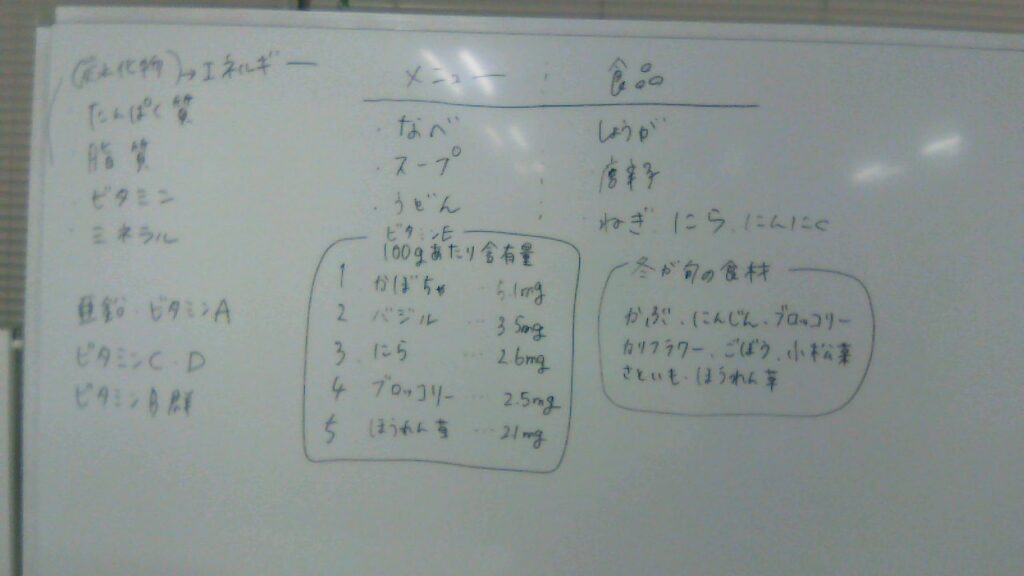 (炭水化物)→エネルギー
・たんぱく質
・脂質
・ビタミン
・ミネラル
亜鉛・ビタミンA
ビタミンC・D
ビタミンB群
メニュー
・なべ
・スープ
・うどん
食品
しょうが
唐辛子
ねぎ、にら、にんにく
ビタミンE
100gあたり含有量
1 かぼちゃ … 5.1mg
2 バジル … 3.5mg
3 にら … 2.6mg
4 ブロッコリー … 2.5mg
5 ほうれん草 … 2.1mg
冬が旬の食材
かぶ、にんじん、ブロッコリー
カリフラワー、ごぼう、小松菜
さといも、ほうれん草